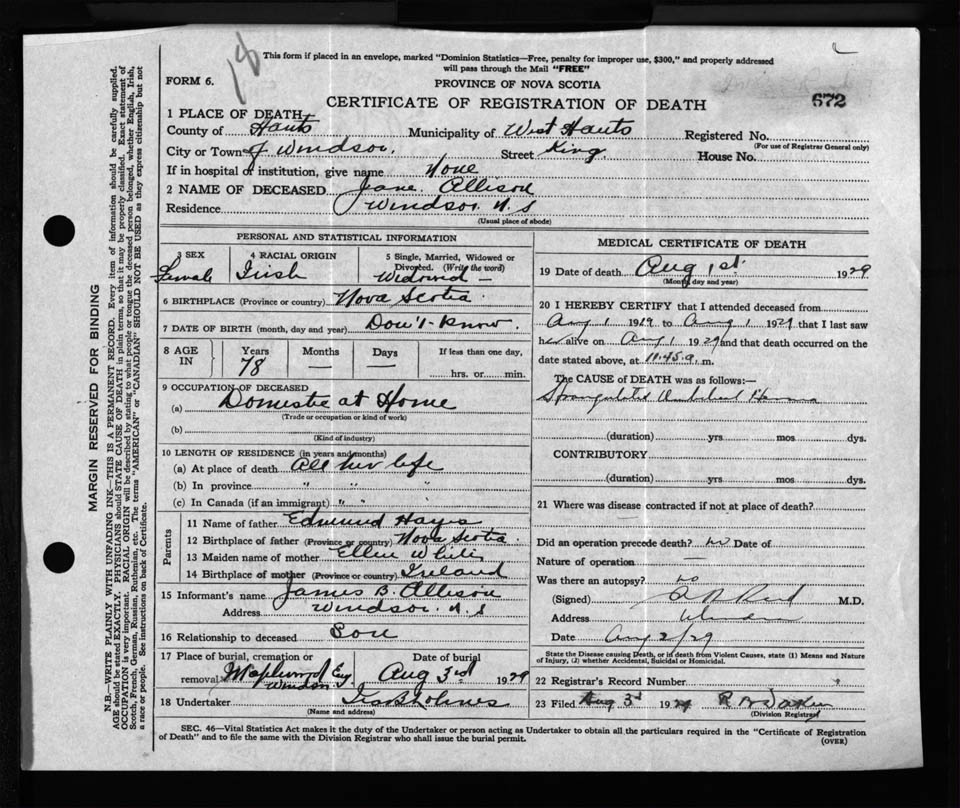 18
This form if placed in an envelope, marked "Dominion Statistics—Free, penalty for improper use, $300," and properly addressed
will pass through the Mail "FREE"
FORM 6.
PROVINCE OF NOVA SCOTIA
CERTIFICATE OF REGISTRATION OF DEATH
672
1 PLACE OF DEATH
County of Hants Municipality of West Hants Registered No.
(For use of Registrar General only)
City or Town of Windsor. Street King. House No.
If in hospital or institution, give name None
2 NAME OF DECEASED Jane Allison
Residence Windsor N.S
(Usual place of abode)
PERSONAL AND STATISTICAL INFORMATION
3 SEX 4 RACIAL ORIGIN 5 Single, Married, Widowed or
Divorced. (Write the word)
Female Irish Widowed
6 BIRTHPLACE (Province or country) Nova Scotia
7 DATE OF BIRTH (month, day and year) Don't know.
8 AGE IN Years Months Days If less than one day,
78 — — hrs. or min.
9 OCCUPATION OF DECEASED
(a) Domestic at Home
(Trade or occupation or kind of work)
(b)
(Kind of industry)
10 LENGTH OF RESIDENCE (in years and months)
(a) At place of death All her life
(b) In province " " "
(c) In Canada (if an immigrant) " " "
Parents
11 Name of father Edmund Hayes
12 Birthplace of father (Province or country) Nova Scotia
13 Maiden name of mother Ellen White
14 Birthplace of mother (Province or country) Ireland
15 Informant's name James B. Allison
Address Windsor N.S
16 Relationship to deceased Son
17 Place of burial, cremation or Date of burial
removal. Maplewood Windsor Aug 3rd 1929
18 Undertaker
(Name and address)
MEDICAL CERTIFICATE OF DEATH
19 Date of death Aug 1st. 1929
(Month, day and year)
20 I HEREBY CERTIFY that I attended deceased from
Aug 1 1929 to Aug 1 1929 that I last saw
her alive on Aug 1 1929 and that death occurred on the
date stated above, at 11.45 a. m.
The CAUSE OF DEATH was as follows:—
Strangulated Umbilical Hernia
(duration) yrs mos dys.
CONTRIBUTORY
(duration) yrs mos dys.
21 Where was disease contracted if not at place of death?
Did an operation precede death? no Date of
Nature of operation
Was there an autopsy? no
(Signed) Reid M.D.
Address Windsor
Date Aug 2/29
State the Disease causing Death, or in death from Violent Causes, state (1) Means and Nature
of Injury, (2) whether Accidental, Suicidal or Homicidal.
22 Registrar's Record Number
23 Filed Aug 3d 1929
(Division Registrar)
SEC. 46—Vital Statistics Act makes it the duty of the Undertaker or person acting as Undertaker to obtain all the particulars required in the "Certificate of Registration
of Death" and to file the same with the Division Registrar who shall issue the burial permit.
(OVER)
MARGIN RESERVED FOR BINDING
N.B.—WRITE PLAINLY WITH UNFADING INK—THIS IS A PERMANENT RECORD. Every item of information should be carefully supplied.
AGE should be stated EXACTLY. PHYSICIANS should STATE CAUSE OF DEATH in plain terms, so that it may be properly classified. Exact statement of
OCCUPATION is very important. RACIAL ORIGIN will be described by stating to what people or tongue the deceased person belonged, whether English, Irish,
Scotch, French, German, Russian, Ruthenian, etc. The terms "AMERICAN" or "CANADIAN" SHOULD NOT BE USED as they express citizenship but not
a race or people. See instructions on back of Certificate.